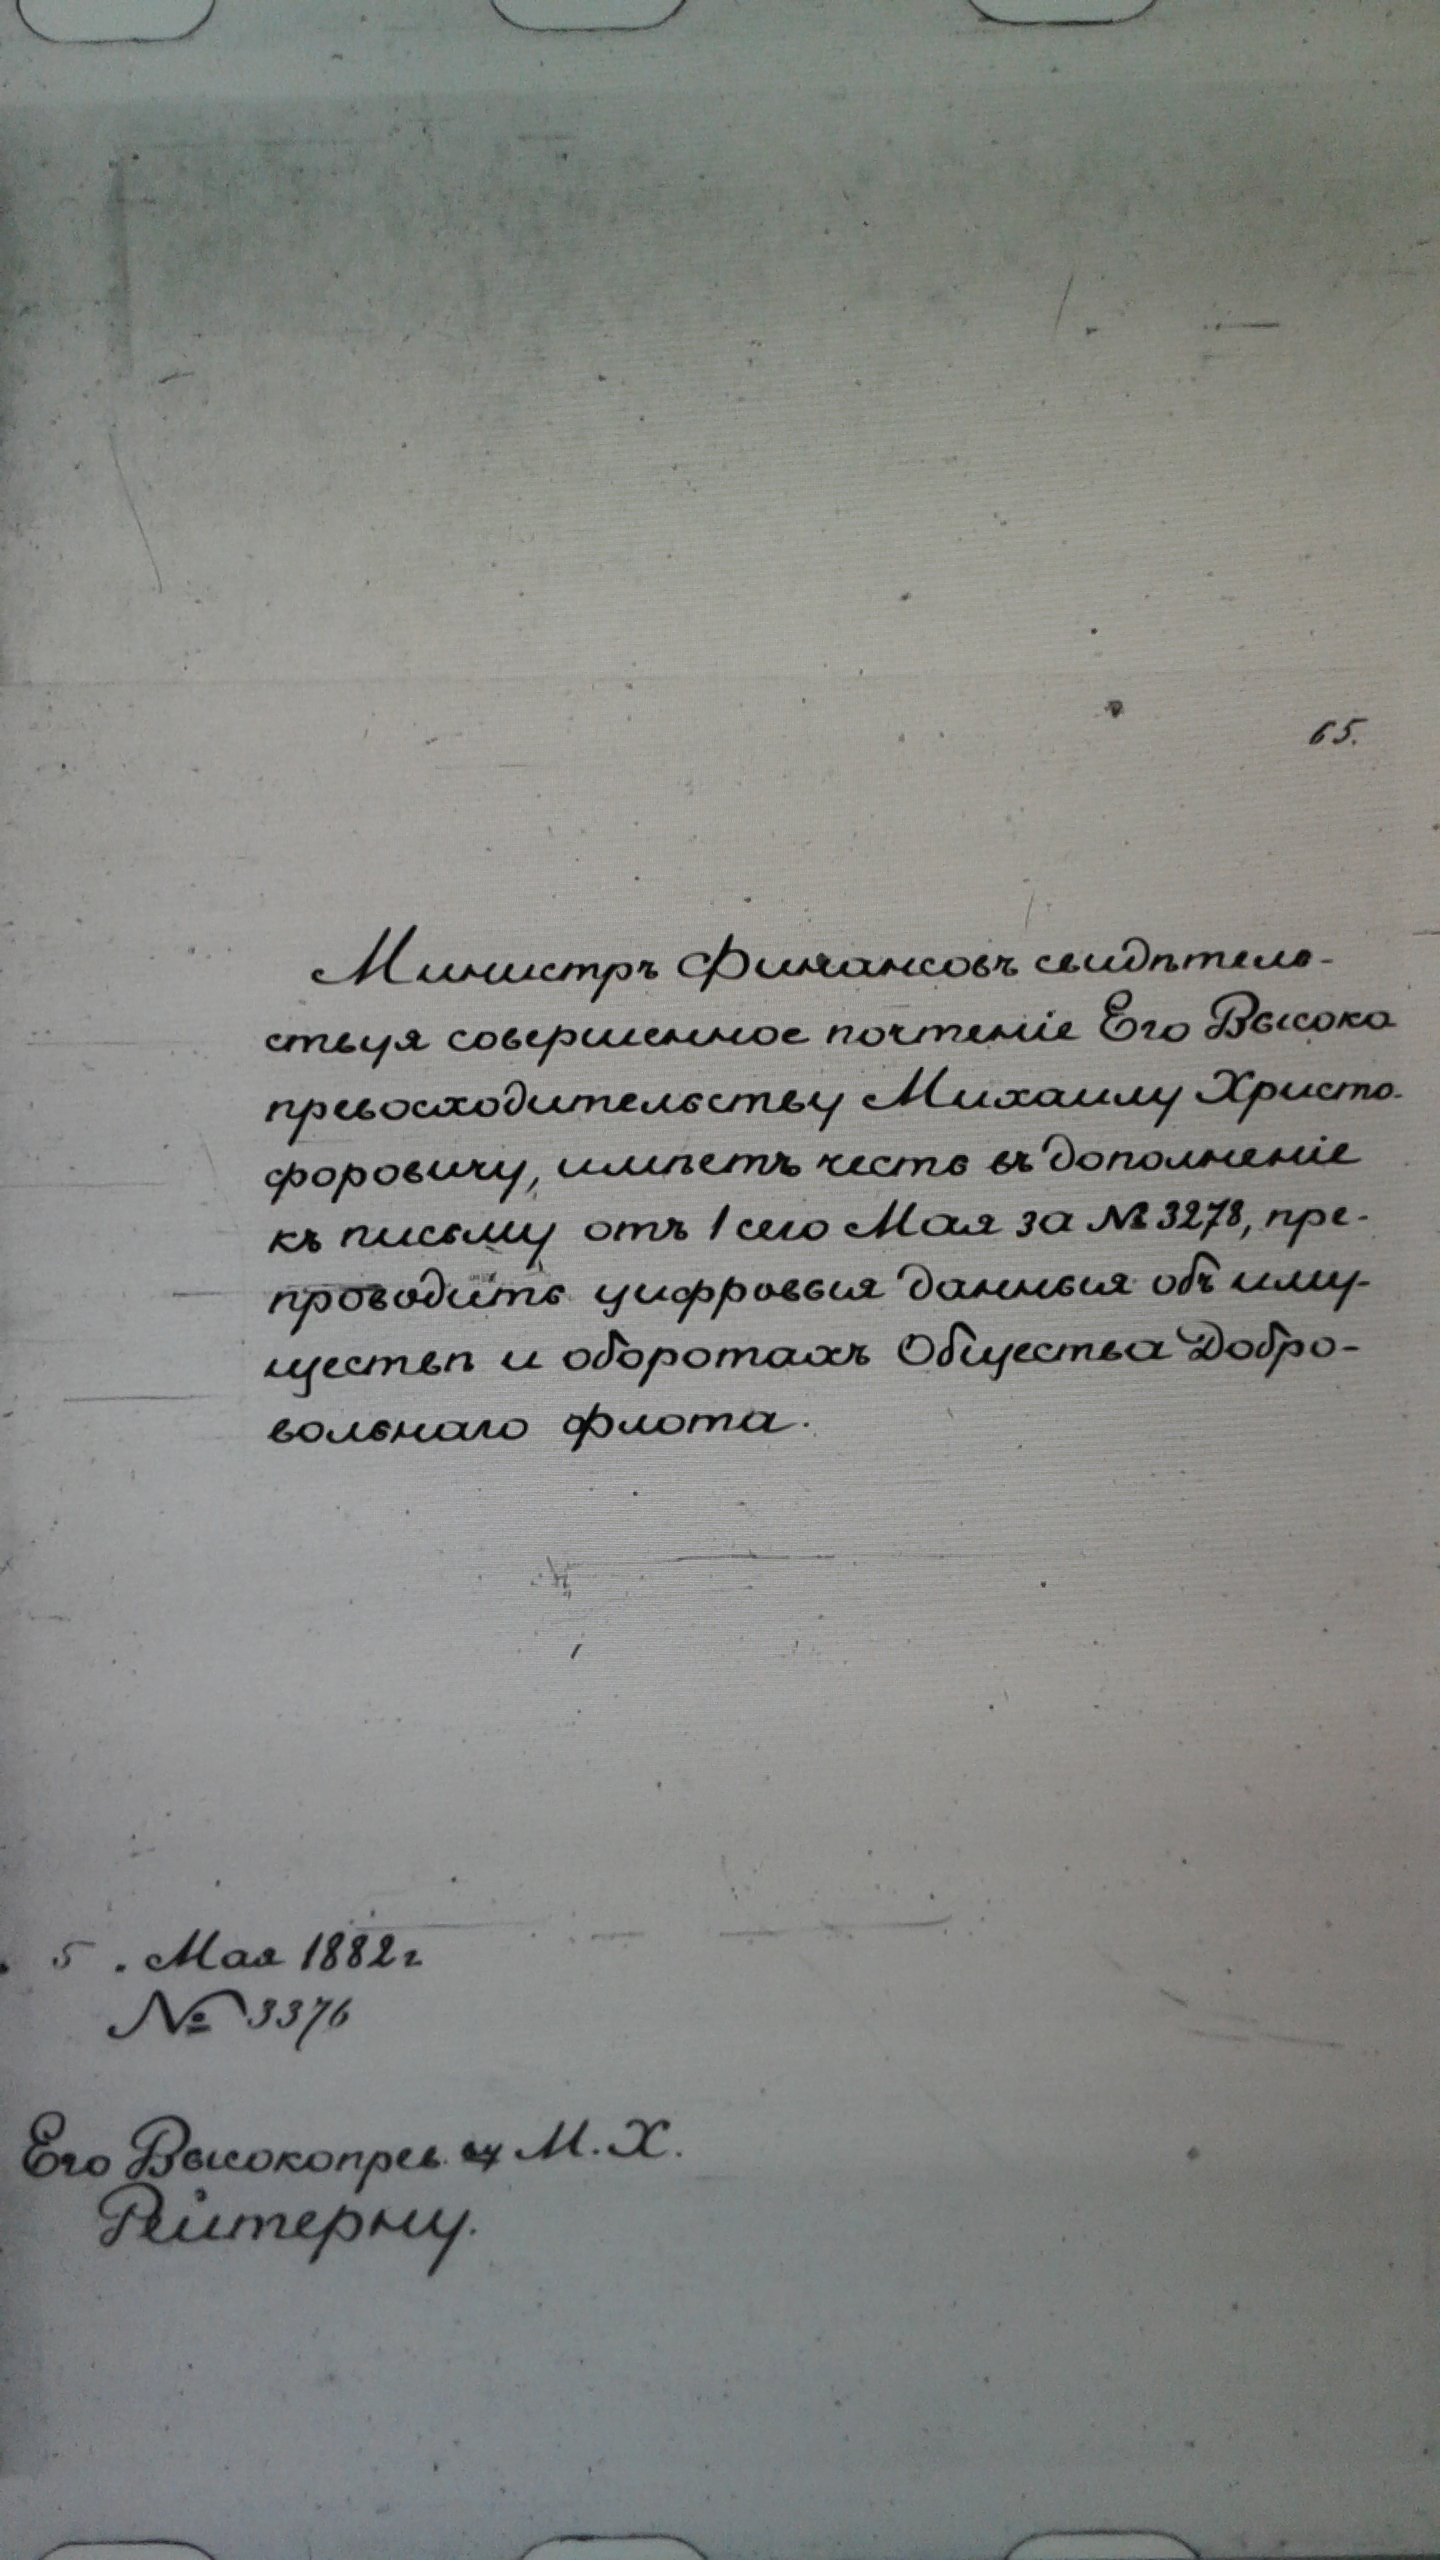 65.
Министръ Финансовъ свидѣтель-
ствуя совершенное почтеніе Его Высоко
превосходительству Михаилу Христо-
форовичу, имѣетъ честь въ дополненіе
къ письму отъ 1 сего Мая за № 3278, пре-
проводить цифровыя данныя объ иму-
ществѣ и оборотахъ Общества Добро-
вольнаго флота.
5. Мая 1882 г.
№ 3376
Его Высокопрев. М. Х.
Рейтерну.